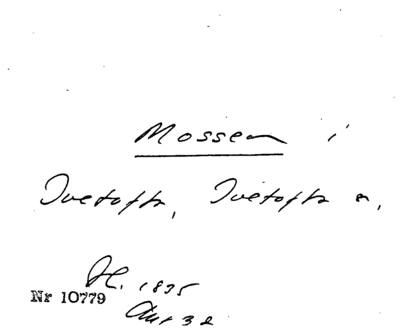 Mossen i
Ivetofta, Ivetofta s,
H. 1835
Nr 10779
Akt 32